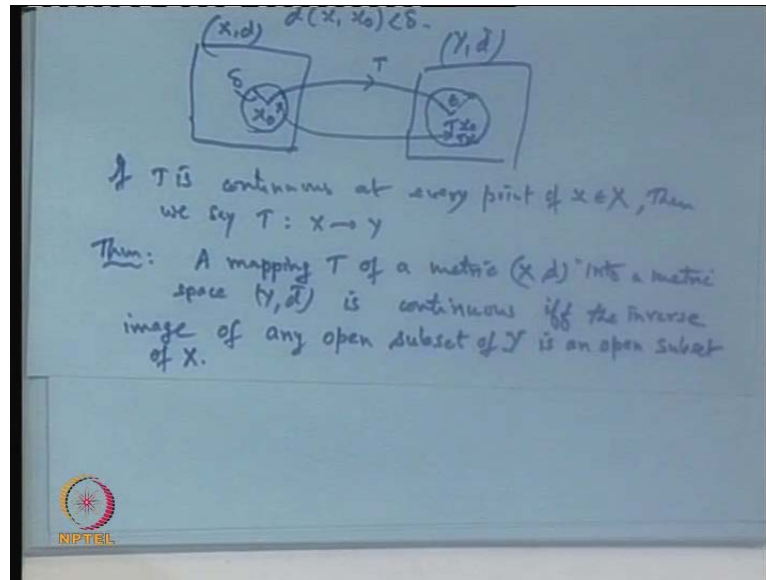 d(x, x₀) < δ.
(X, d)
(Y, d̄)
T
δ
x₀
Tx₀
Tx
If T is continuous at every point of x ∈ X, Then
we say T : X → Y
Thm: A mapping T of a metric (X d) into a metric
space (Y, d̄) is continuous iff the inverse
image of any open subset of Y is an open subset
of X.
NPTEL